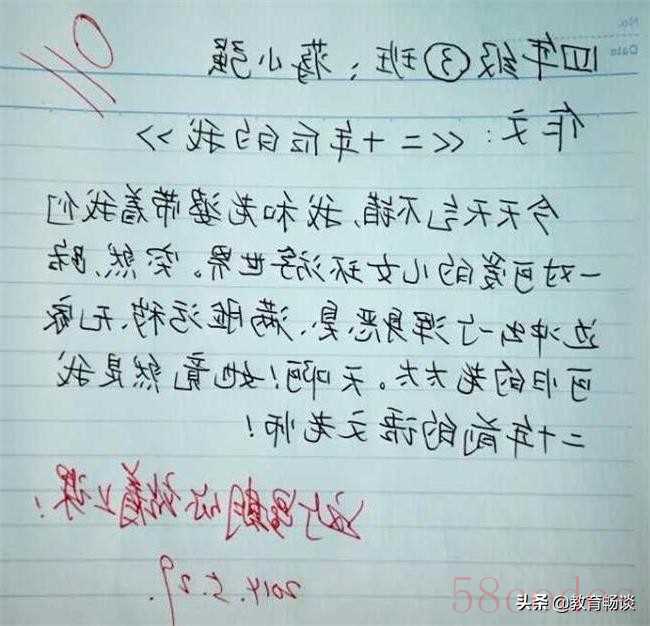 No.
Date
0
四年级③班：蒋小强
作文：《二十年后的我》
今天天气不错，我和老婆带着我们
一对可爱的儿女环游世界。突然，路
边冲出一个浑身恶臭、满脸污秽、无家
可归的老太太。天啊！她竟然是我
二十年前的语文老师！
2014.5.29.
头条 @教育畅谈